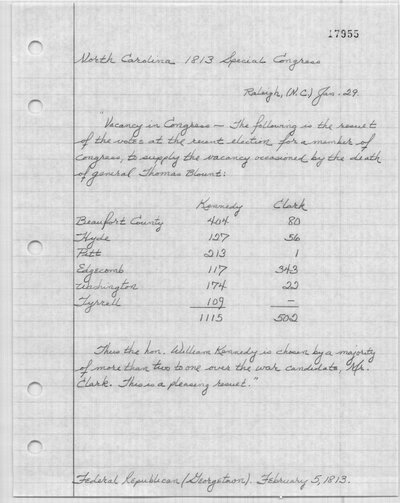 17955
North Carolina 1813 Special Congress
Raleigh, (N.C.) Jan. 29.
"Vacancy in Congress — The following is the result
of the votes at the recent election for a member of
congress, to supply the vacancy occasioned by the death
of general Thomas Blount:
Kennedy Clark
Beaufort County 404 80
Hyde 127 56
Pitt 213 1
Edgecomb 117 343
Washington 174 22
Tyrrell 109 —
1115 502
Thus the hon. William Kennedy is chosen by a majority
of more than two to one over the war candidate, Mr.
Clark. This is a pleasing result."
Federal Republican (Georgetown). February 5, 1813.